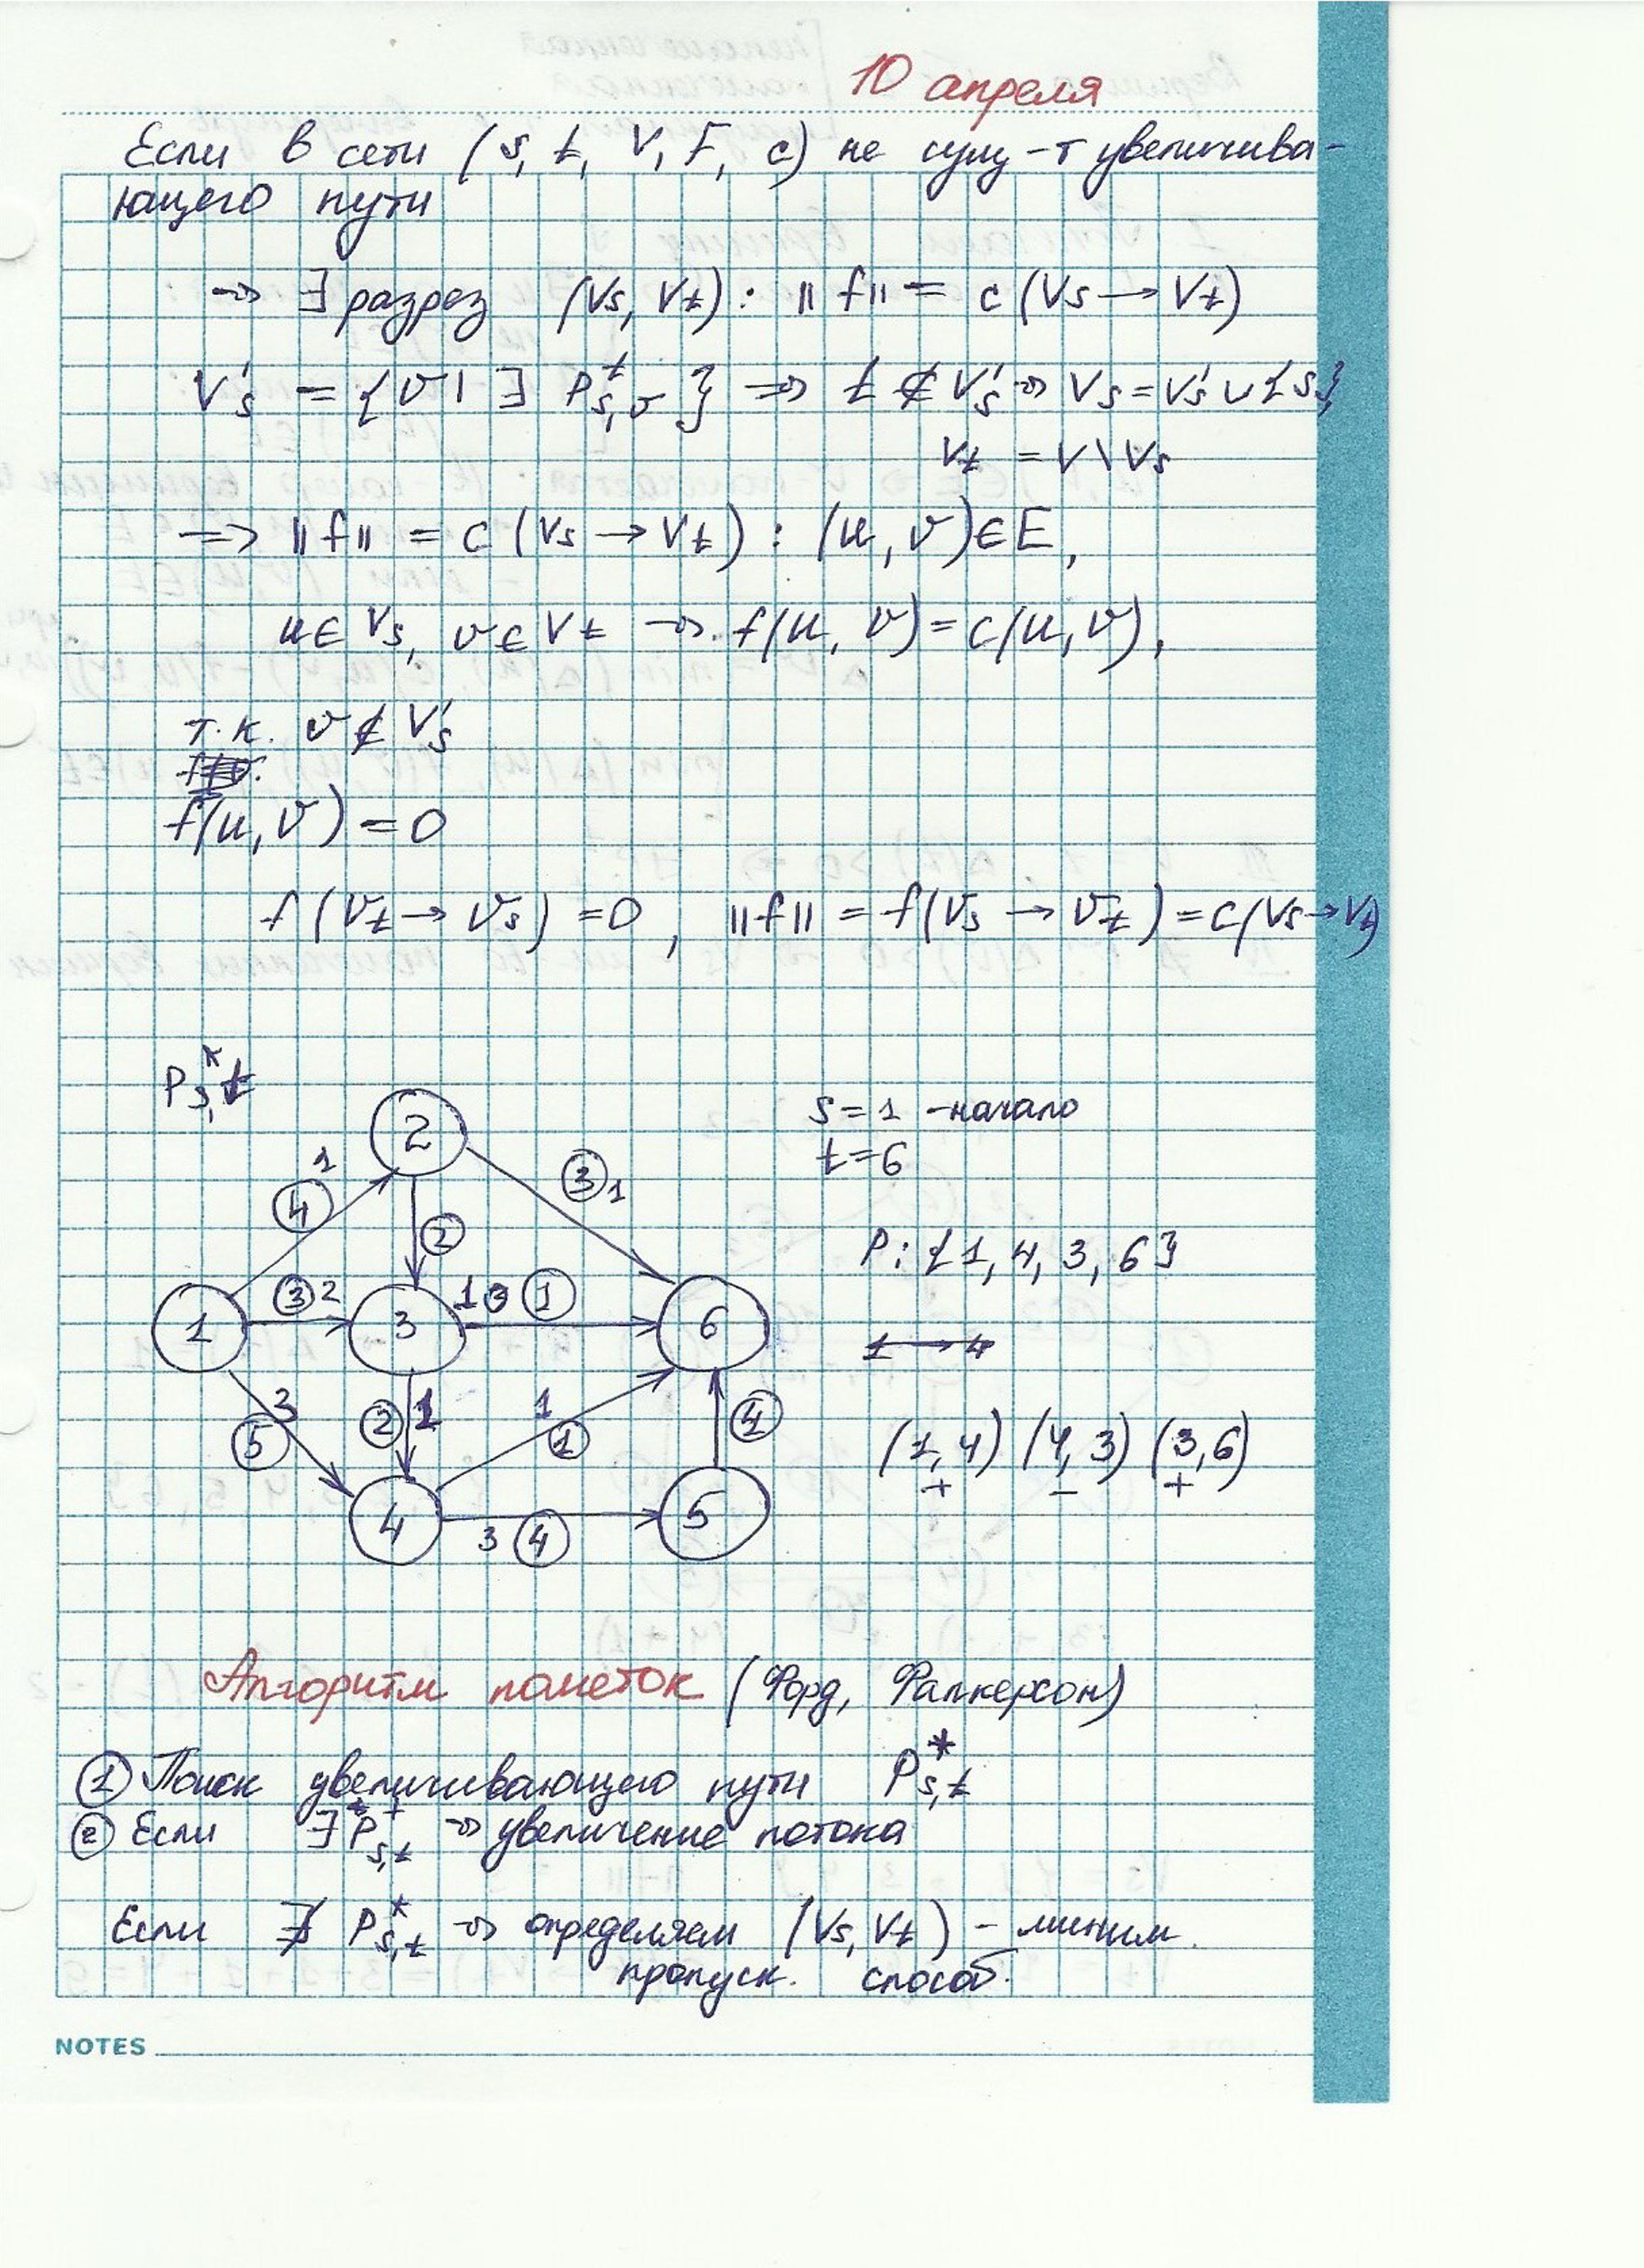 10 апреля
Если в сети (s, t, V, E, c) не сущ-т увеличива-
ющего пути
⇒ ∃ разрез (Vs, Vt): ||f|| = c(Vs → Vt)
V's = {v | ∃ P*s,v} ⇒ t ∉ V's ⇒ Vs = V's ∪ {s}
Vt = V \ Vs
⇒ ||f|| = c(Vs → Vt): (u, v) ∈ E,
u ∈ Vs, v ∈ Vt ⇒ f(u, v) = c(u, v),
т.к. v ∉ V's
f(u, v) = 0
f(Vt → Vs) = 0, ||f|| = f(Vs → Vt) = c(Vs → Vt)
P*s,t
s = 1 - начало
t = 6
2
1
4
3 1
2
P: {1, 4, 3, 6}
1
3 2
3
1 0 1
6
1 → 4
3
5
2 1
1
1
4
(1, 4) (4, 3) (3, 6)
+ - +
4
3 4
5
Алгоритм пометок (Форд, Фалкерсон)
① Поиск увеличивающего пути P*s,t
② Если ∃ P*s,t ⇒ увеличение потока
Если ∄ P*s,t ⇒ определяем (Vs, Vt) - миним.
пропуск. способ.
NOTES